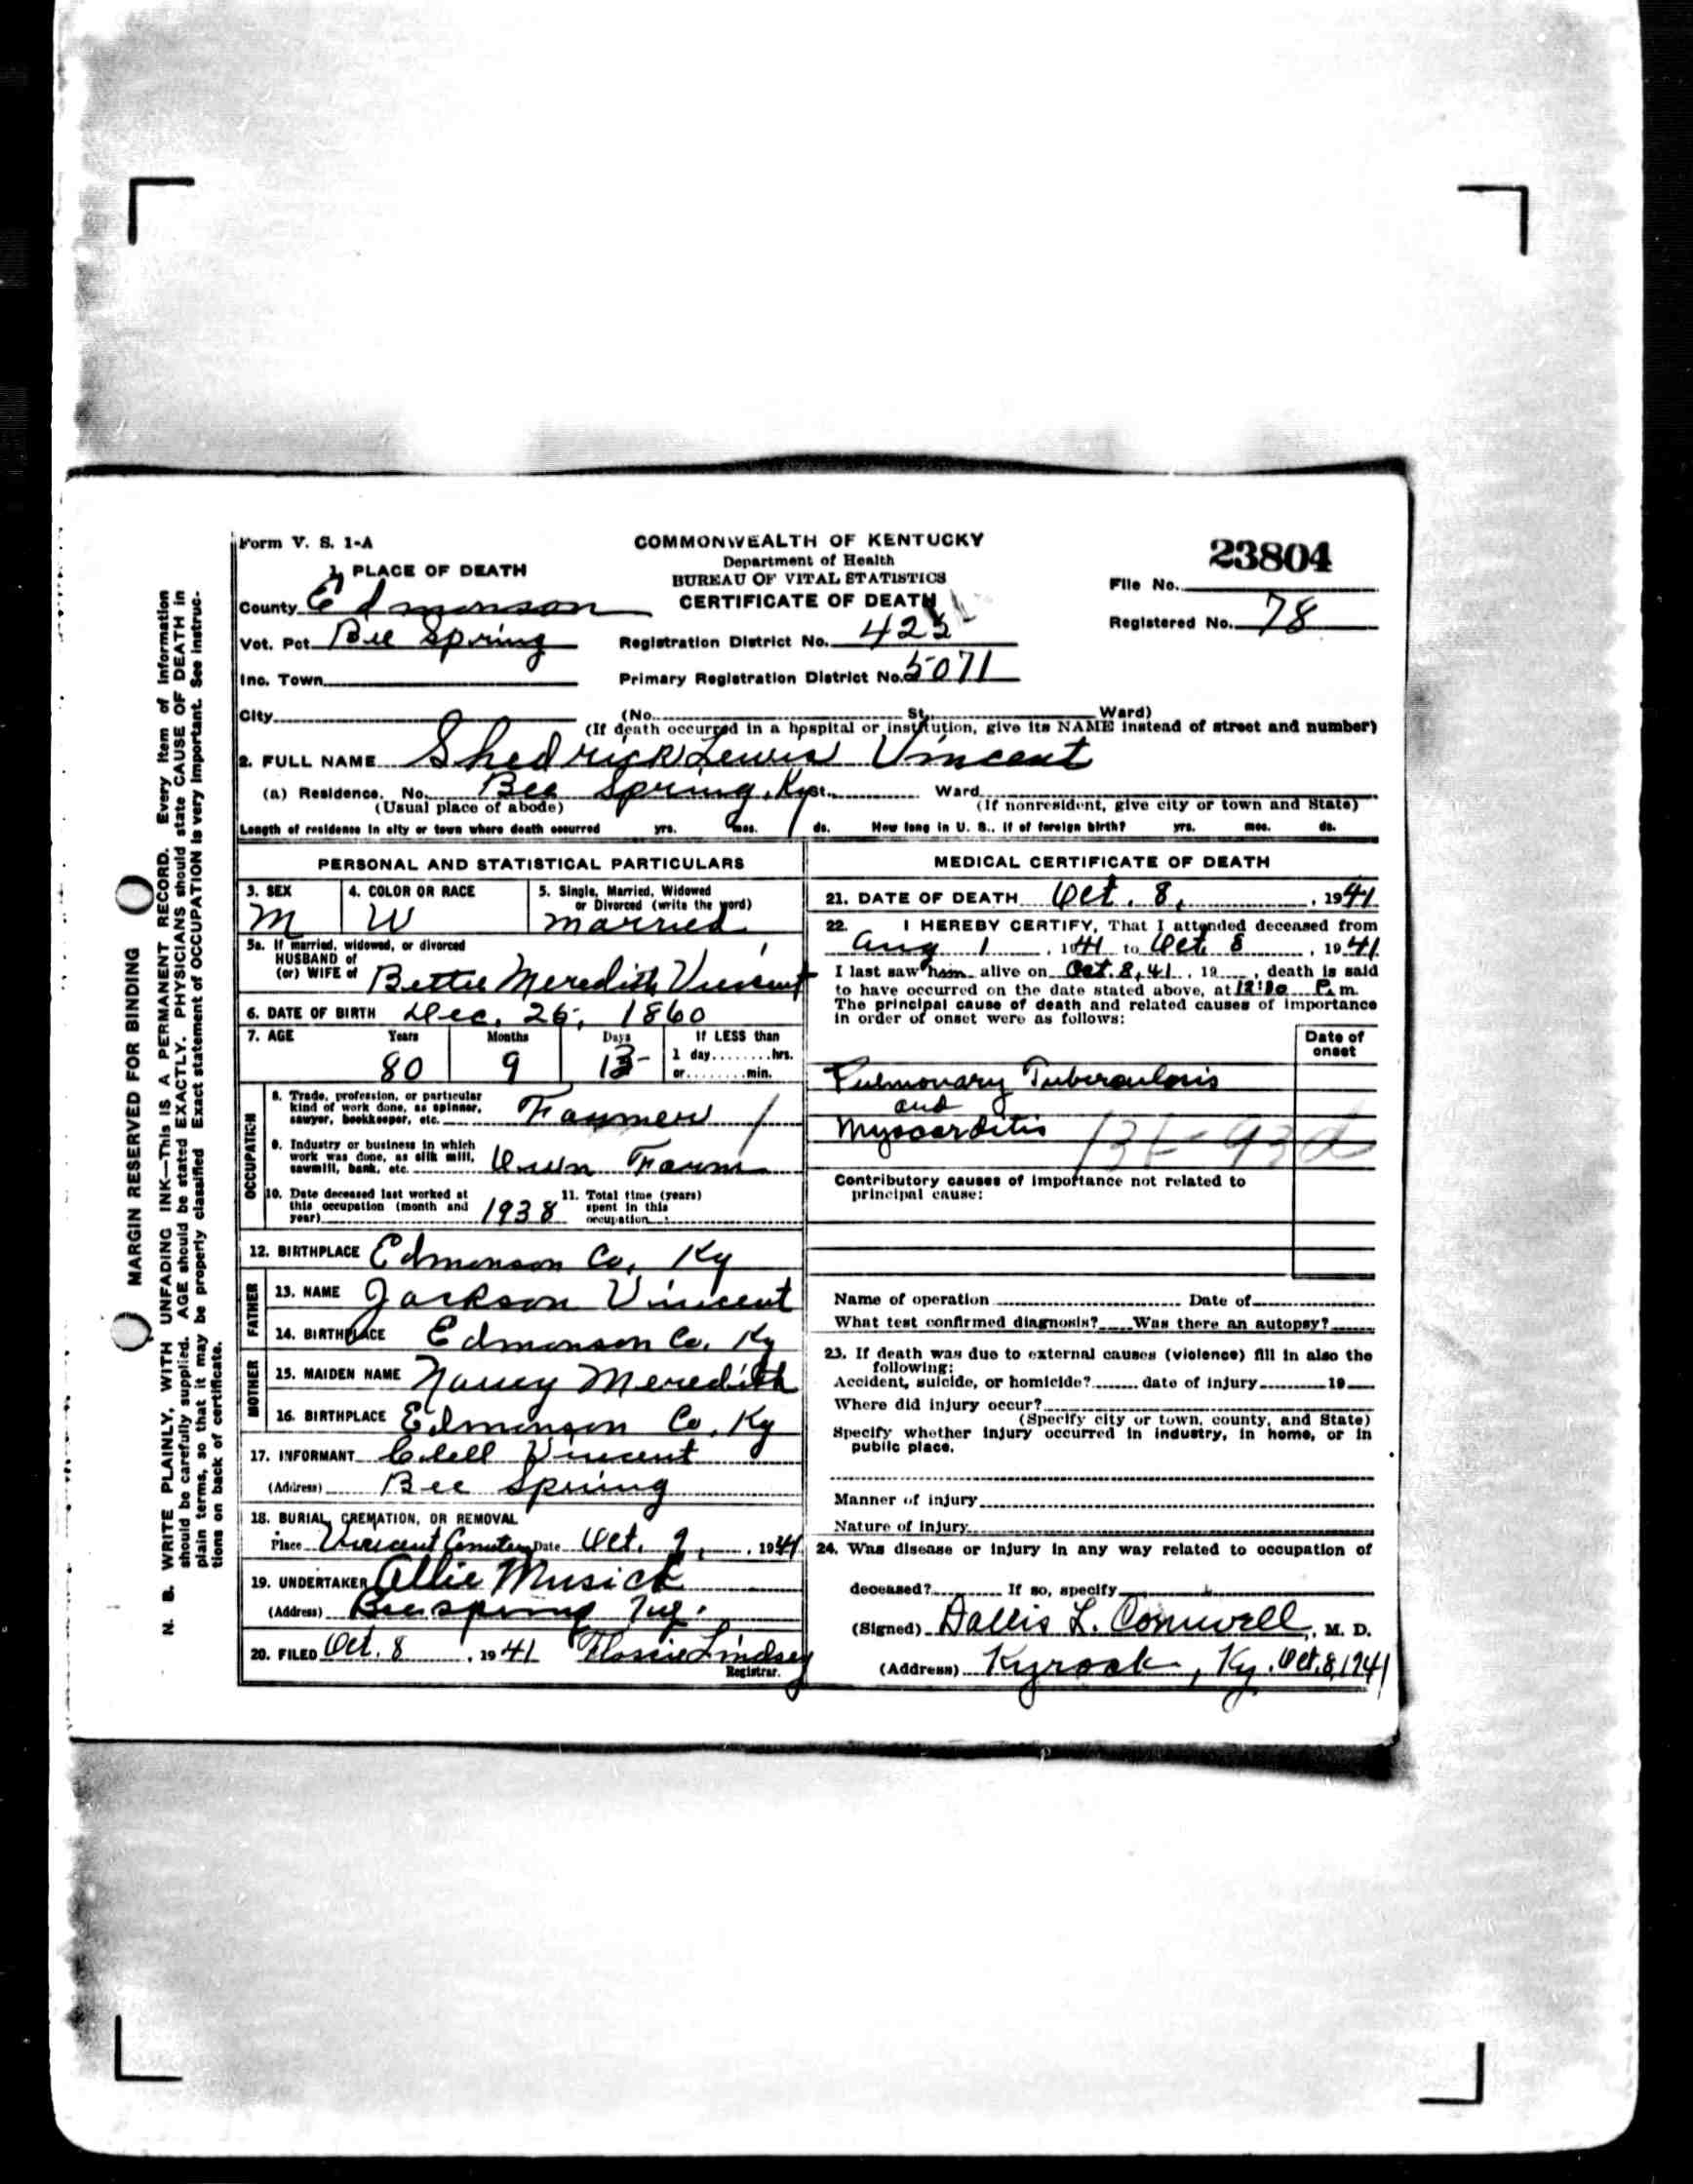 Form V. S. 1-A
COMMONWEALTH OF KENTUCKY
Department of Health
BUREAU OF VITAL STATISTICS
CERTIFICATE OF DEATH
23804
File No.
Registered No. 78
1. PLACE OF DEATH
County Edmonson
Vot. Pct. Bee Spring
Registration District No. 422
Inc. Town
Primary Registration District No. 5071
City (No. St. Ward)
(If death occurred in a hospital or institution, give its NAME instead of street and number)
2. FULL NAME Shedrick Lewis Vincent
(a) Residence. No. Bee Spring, Ky St. Ward
(Usual place of abode) (If nonresident, give city or town and State)
Length of residence in city or town where death occurred yrs. mos. ds. How long in U. S., if of foreign birth? yrs. mos. ds.
PERSONAL AND STATISTICAL PARTICULARS
3. SEX 4. COLOR OR RACE 5. Single, Married, Widowed
or Divorced (write the word)
M W Married
5a. If married, widowed, or divorced
HUSBAND of
(or) WIFE of Bettie Meredith Vincent
6. DATE OF BIRTH Dec. 26, 1860
7. AGE Years Months Days If LESS than
1 day hrs.
or min.
80 9 13
OCCUPATION
8. Trade, profession, or particular
kind of work done, as spinner,
sawyer, bookkeeper, etc. Farmer
9. Industry or business in which
work was done, as silk mill,
sawmill, bank, etc. Own Farm
10. Date deceased last worked at
this occupation (month and
year) 1938
11. Total time (years)
spent in this
occupation
12. BIRTHPLACE Edmonson Co, Ky
FATHER
13. NAME Jackson Vincent
14. BIRTHPLACE Edmonson Co. Ky
MOTHER
15. MAIDEN NAME Nancy Meredith
16. BIRTHPLACE Edmonson Co. Ky
17. INFORMANT Clell Vincent
(Address) Bee Spring
18. BURIAL, CREMATION, OR REMOVAL
Place Vincent Cemetery Date Oct. 9, 1941
19. UNDERTAKER Allie Musick
(Address) Bee Spring Ky.
20. FILED Oct. 8, 1941 Flossie Lindsey
Registrar.
MEDICAL CERTIFICATE OF DEATH
21. DATE OF DEATH Oct. 8, 1941
22. I HEREBY CERTIFY, That I attended deceased from
Aug 1, 1941 to Oct. 8, 1941
I last saw him alive on Oct. 8, 41, 19 , death is said
to have occurred on the date stated above, at P. m.
The principal cause of death and related causes of importance
in order of onset were as follows:
Date of
onset
Pulmonary Tuberculosis
and
Myocarditis
Contributory causes of importance not related to
principal cause:
Name of operation Date of
What test confirmed diagnosis? Was there an autopsy?
23. If death was due to external causes (violence) fill in also the
following:
Accident, suicide, or homicide? date of injury 19
Where did injury occur?
(Specify city or town, county, and State)
Specify whether injury occurred in industry, in home, or in
public place.
Manner of injury
Nature of injury
24. Was disease or injury in any way related to occupation of
deceased? If so, specify
(Signed) Dallis L. Conwell, M. D.
(Address) Kyrock, Ky. Oct. 8, 1941
MARGIN RESERVED FOR BINDING
N. B. WRITE PLAINLY, WITH UNFADING INK—THIS IS A PERMANENT RECORD. Every item of information
should be carefully supplied. AGE should be stated EXACTLY. PHYSICIANS should state CAUSE OF DEATH in
plain terms, so that it may be properly classified Exact statement of OCCUPATION is very important. See instruc-
tions on back of certificate.